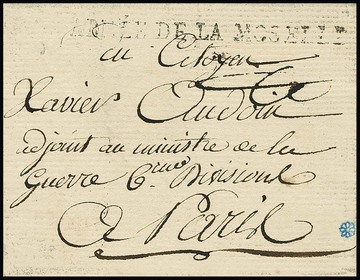 ARMÉE DE LA MOSELLE
au Citoyen
Xavier Audoin
adjoint au ministre de la
Guerre 6.eme Division
A Paris